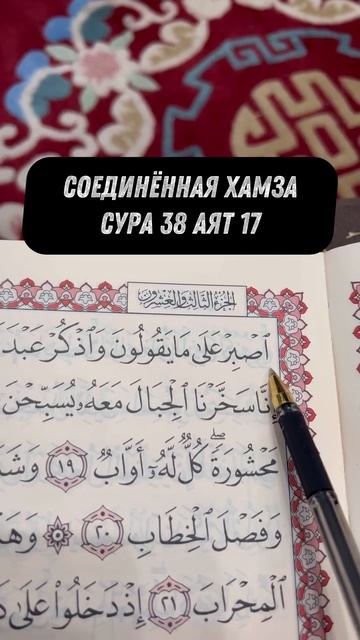 СОЕДИНЁННАЯ ХАМЗА
СУРА 38 АЯТ 17
الجزء الثالث والعشرون
ٱصۡبِرۡ عَلَىٰ مَا يَقُولُونَ وَٱذۡكُرۡ عَبۡدَ
إِنَّا سَخَّرۡنَا ٱلۡجِبَالَ مَعَهُۥ يُسَبِّحۡنَ
مَحۡشُورَةٗۖ كُلّٞ لَّهُۥٓ أَوَّابٞ ١٩ وَشَ
وَفَصۡلَ ٱلۡخِطَابِ ٢٠ ۞ وَهَ
ٱلۡمِحۡرَابَ ٢١ إِذۡ دَخَلُواْ عَلَىٰ